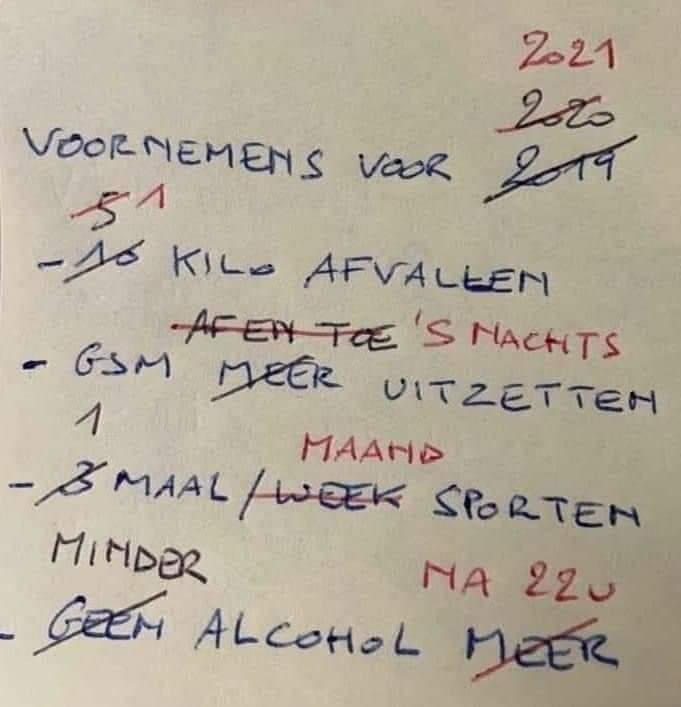 2021
2020
VOORNEMENS VOOR 2019
5 1
- 10 KILO AFVALLEN
AF EN TOE 'S NACHTS
- GSM MEER UITZETTEN
1
MAAND
- 3 MAAL / WEEK SPORTEN
MINDER
NA 22U
- GEEN ALCOHOL MEER